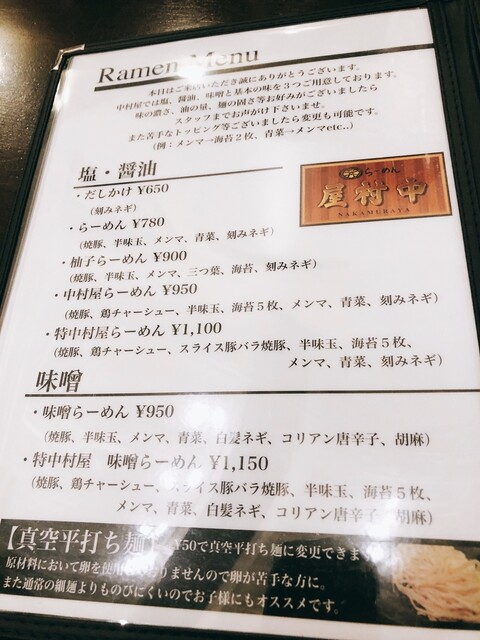 Ramen Menu
本日はご来店いただき誠にありがとうございます。
中村屋では塩、醤油、味噌と基本の味を３つご用意しております。
味の濃さ、油の量、麺の固さ等お好みがございましたら
スタッフまでお声がけ下さいませ。
また苦手なトッピング等ございましたら変更も可能です。
(例：メンマ→海苔２枚、青菜→メンマetc..)
塩・醤油
・だしかけ ¥650
(刻みネギ)
・らーめん ¥780
(焼豚、半味玉、メンマ、青菜、刻みネギ)
・柚子らーめん ¥900
(焼豚、半味玉、メンマ、三つ葉、海苔、刻みネギ)
・中村屋らーめん ¥950
(焼豚、鶏チャーシュー、半味玉、海苔５枚、メンマ、青菜、刻みネギ)
・特中村屋らーめん ¥1,100
(焼豚、鶏チャーシュー、スライス豚バラ焼豚、半味玉、海苔５枚、
メンマ、青菜、刻みネギ)
らーめん
屋村中
NAKAMURAYA
味噌
・味噌らーめん ¥950
(焼豚、半味玉、メンマ、青菜、白髪ネギ、コリアン唐辛子、胡麻)
・特中村屋 味噌らーめん ¥1,150
(焼豚、鶏チャーシュー、スライス豚バラ焼豚、半味玉、海苔５枚、
メンマ、青菜、白髪ネギ、コリアン唐辛子、胡麻)
【真空平打ち麺】 ¥50で真空平打ち麺に変更できま
原材料において卵を使用 おりませんので卵が苦手な方に。
また通常の細麺よりものびにくいのでお子様にもオススメです。